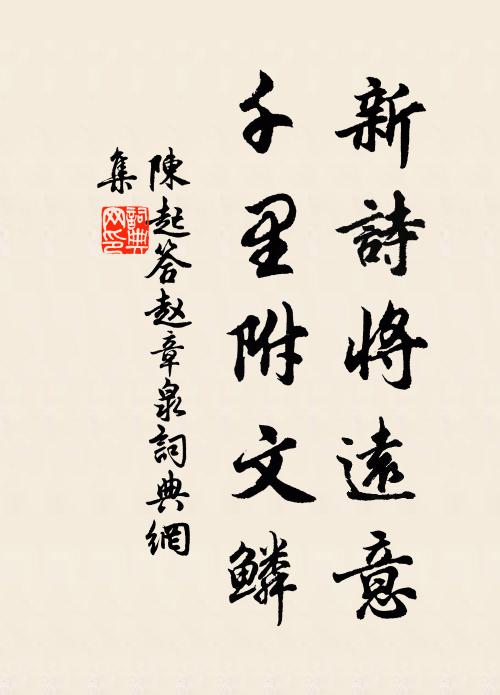 新詩將遠意
千里附文鱗
陳起答赵章泉詞典網
集
詞典
网印